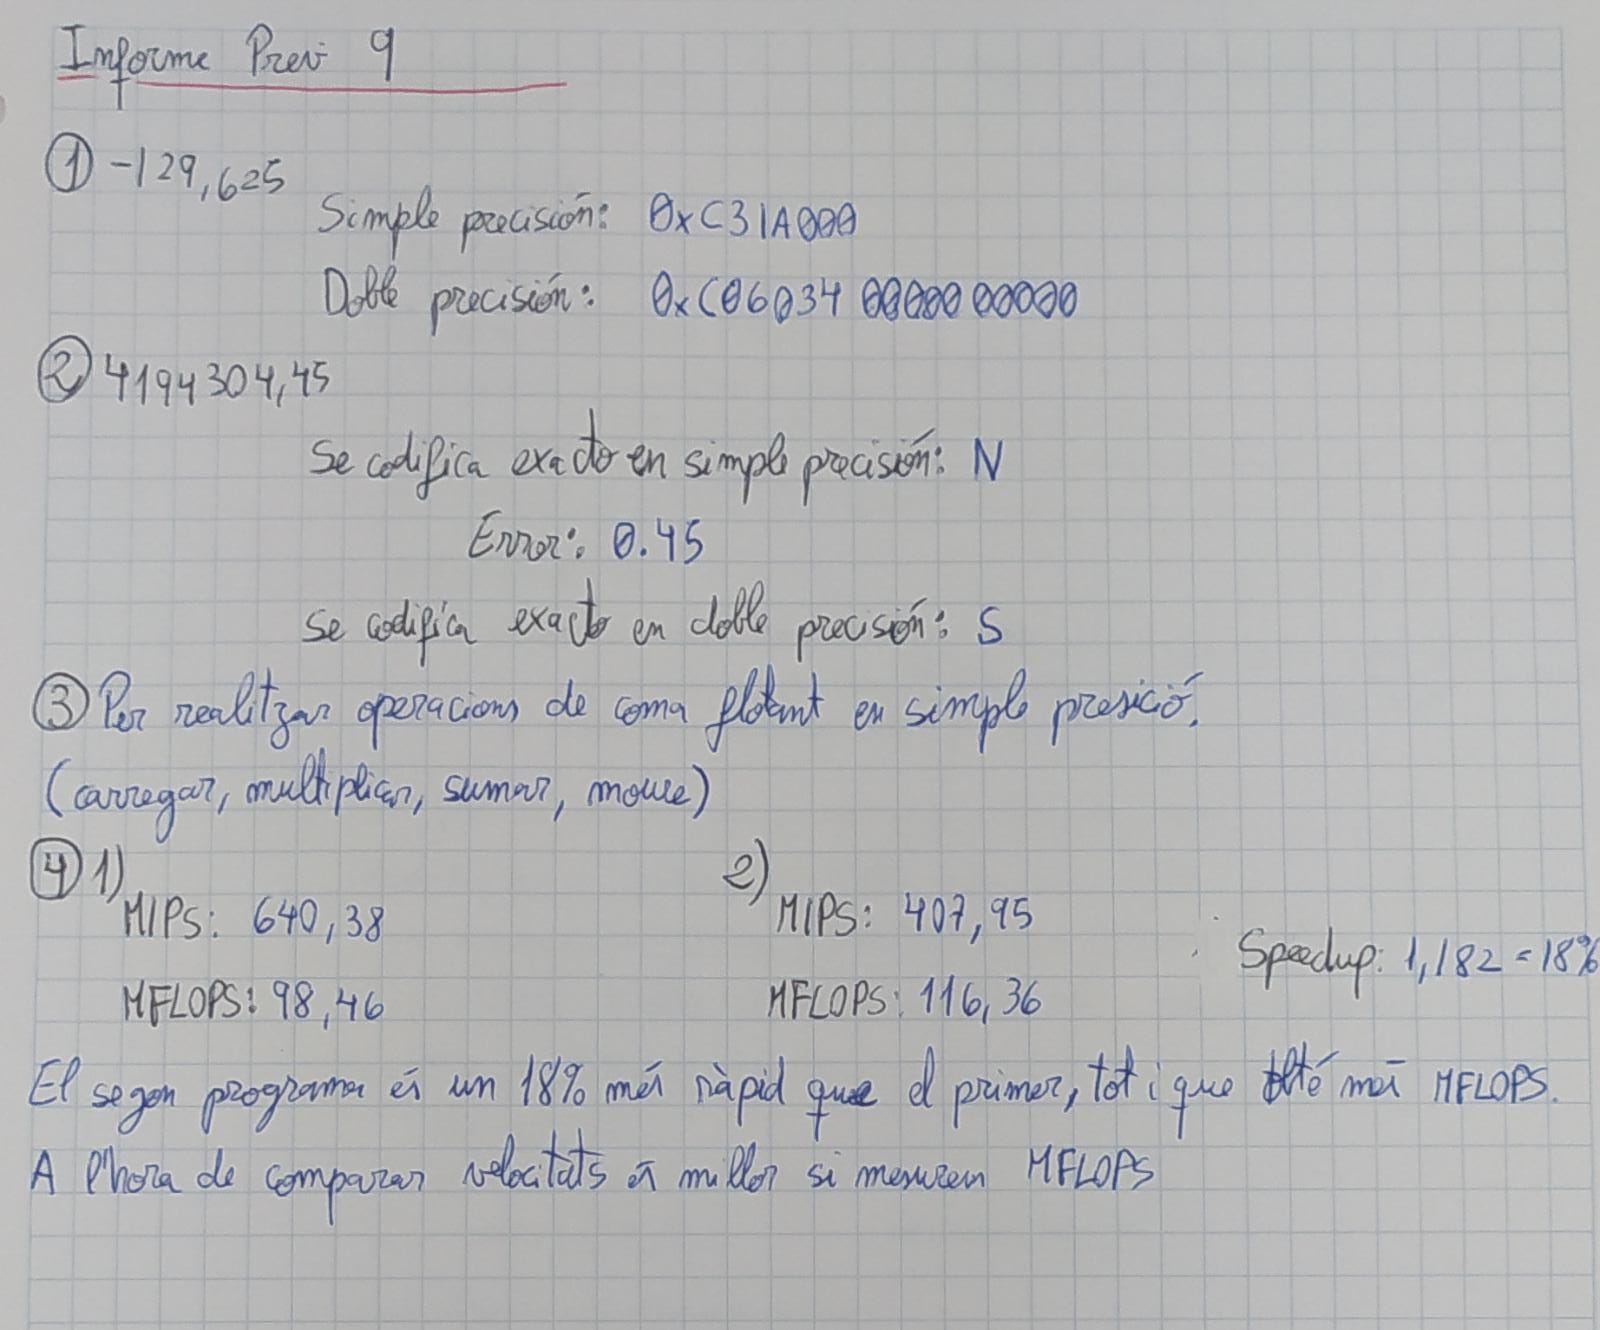 Informe Previ 9
① -129,625
Simple precisión: 0xC31A000
Doble precisión: 0xC06034 0000000000
② 4194304,45
Se codifica exacto en simple precisión: N
Error: 0.45
Se codifica exacto en doble precisión: S
③ Per realitzar operacions de coma flotant en simple presició.
(carregar, multiplicar, sumar, moure)
④ 1) 2)
MIPS: 640,38 MIPS: 407,95
Speedup: 1,182 = 18%
MFLOPS: 98,46 MFLOPS: 116,36
El segon programa és un 18% més ràpid que el primer, tot i que té més MFLOPS.
A l'hora de comparar velocitats és millor si mesurem MFLOPS